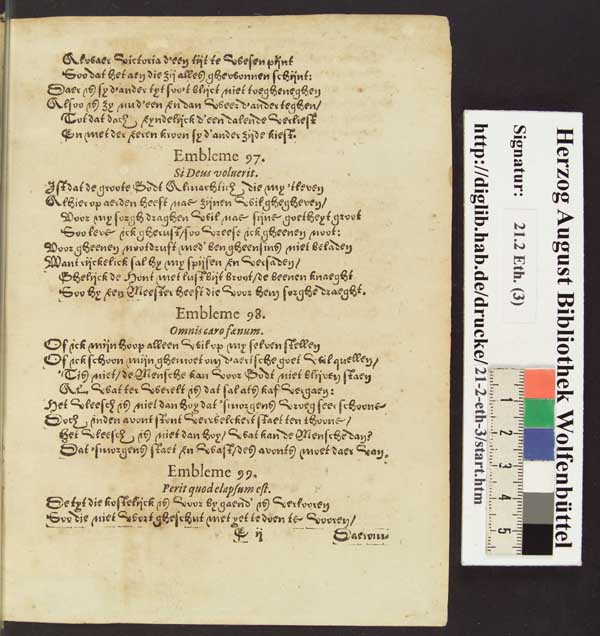 Alwaer Victoria d'een tijt te Wesen pijnt
Soo dat het aen die zij alles ghewonnen schijnt:
Daer is sy d'ander tyt soo't blijct niet toegheneghen
Alsoo is zy nu d'een en dan Weer d'ander teghen/
Tot dat doch eyndelijck d'een dalende Verliest
En met der eeren kroon sy d'ander zijde kiest.
Embleme 97.
Si Deus voluerit.
Ist dat de groote Godt Almachtich die my 't leven
Alhier op aerden heeft nae zijnen Wil ghegheven/
Voor my sorgh draghen Wil nae sijne goetheyt groot
Soo leve ick gherust/soo Vreese ick gheenen noot:
Door gheenen nootdruft met' ben gheensins niet beladen
Want rijckelick sal hy my spijsen en Versaden/
Ghelijck de Hont met lust bijt broot/de beenen knaeght
Soo hy een Meester heeft die Voor hem sorghe draeght.
Embleme 98.
Omnis caro fœnum.
Of ick mijn hoop alleen Wil op my selven stellen
Of ick schoon mijn ghemoet om d'aertsche goet Wil quellen/
'Tis niet/de Mensche kan Voor Godt niet blijven staen
Al Wat ter Werelt is dat sal als kaf Vergaen:
Het Vleesch is niet dan hoy dat 'smorgens Vroeg seer schoone
Doch inden avont stont Verwelckert staet ten thoone/
Het Vleesch is niet dan hoy/ Wat kan de Mensche dan?
Dat 'smorgens staet en Wast/des avonts moet daer Van.
Embleme 99.
Perit quod elapsum est.
De tyt die kostelijck is Voor by gaend' is Verlooren
Soo die niet Wort gheschut met yet te doen te Vooren/
E ij Daerom-
Herzog August Bibliothek Wolfenbüttel
Signatur: 21.2 Eth. (3)
http://diglib.hab.de/drucke/21-2-eth-3/start.htm
1 2 3 4 5